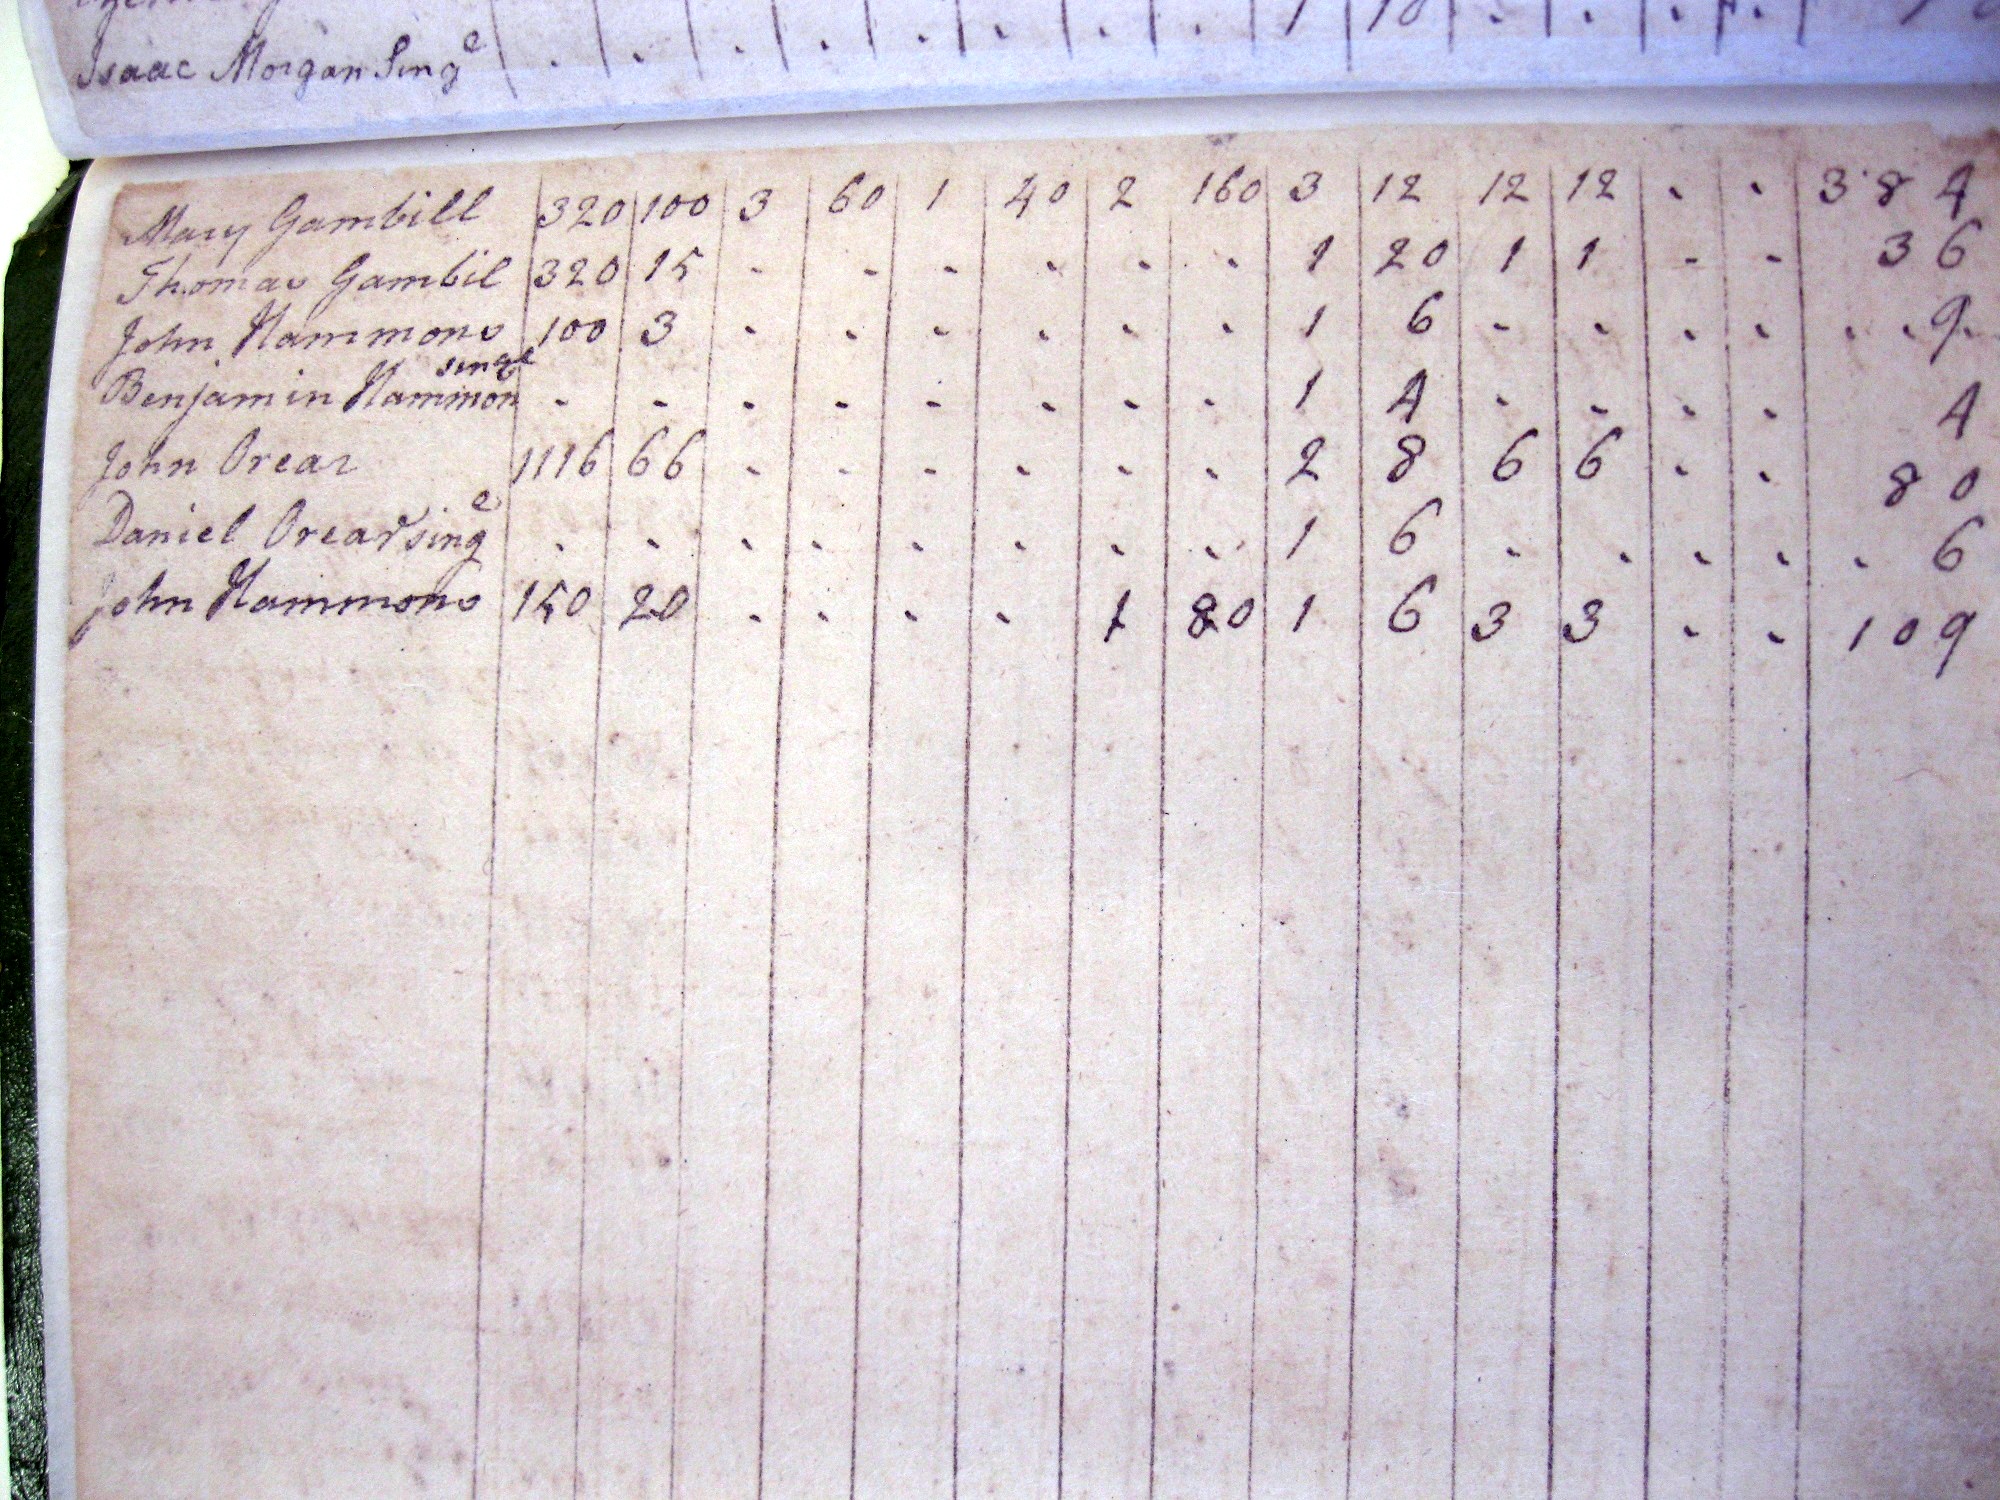 Isaac Morgan Singe . . . . . . . . 1 18 . . . .
Mary Gambill 320 100 3 60 1 40 2 160 3 12 12 12 . . 3 8 4
Thomas Gambil 320 15 - - - - - - 1 20 1 1 - - 3 6
John Hammons 100 3 - - - - - - 1 6 - - - - . . 9
Benjamin Hammon singe - - - - - - - - 1 4 - - - - 4
John Orear 1116 66 - - - - - - 2 8 6 6 - - 8 0
Daniel Orear singe . . . . . . . . 1 6 . . . . . 6
John Hammons 150 20 . . . . 1 80 1 6 3 3 . . 1 0 9